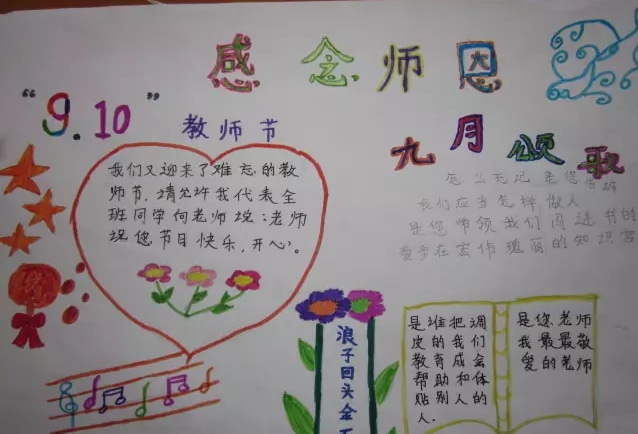 感念师恩
“9.10”
教师节
九月颂歌
我们又迎来了难忘的教
师节,请允许我代表全
班同学向老师说:老师
祝您节日快乐,开心。
怎么忘记 是您告诉
我们应当怎样做人
是您带领我们闯进书的
宏伟瑰丽的知识宫
浪子回头金
是谁把调
皮的我们
教育成会
帮助和体
贴别人的
人.
是您,老师
我最最敬
爱的老师